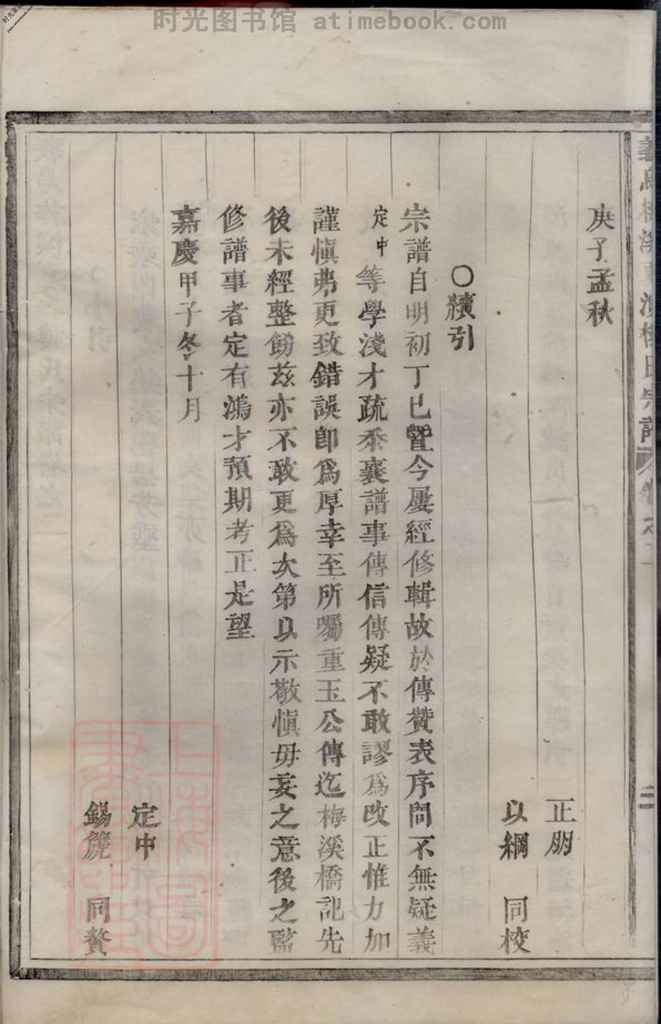 时光图书馆 atimebook.com
庚子孟秋
正朋
以綱 同校
〇續引
宗譜自明初丁巳曁今屢經修輯故於傳贊表序間不無疑義
定中等學淺才疏忝襄譜事傳信傳疑不敢謬爲改正惟力加
謹愼弗更致錯誤卽爲厚幸至所囑重玉公傳迄梅溪橋記先
後未經整飭茲亦不敢更爲次第以示敬愼毋妄之意後之監
修譜事者定有鴻才預期考正是望
嘉慶甲子冬十月
定中
錫麂 同贅